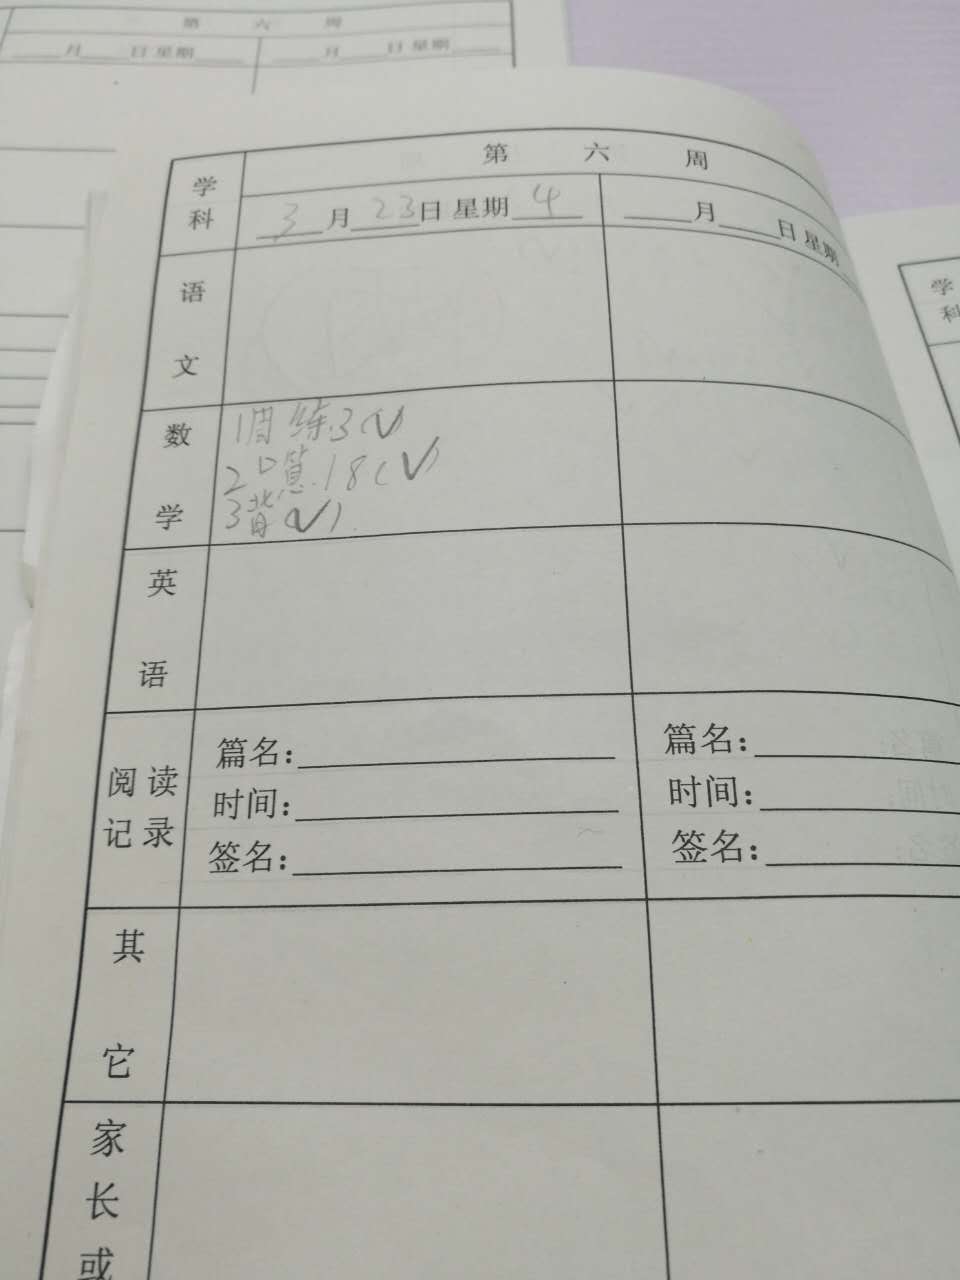 第 六 周
月 日 星期 月 日 星期
第 六 周
学科 3月23日 星期4 月 日 星期
语文
数学
1周练3(√)
2口算18(√)
3背(√)
英语
阅读记录
篇名: 篇名:
时间: 时间:
签名: 签名:
其它
家长或
学科